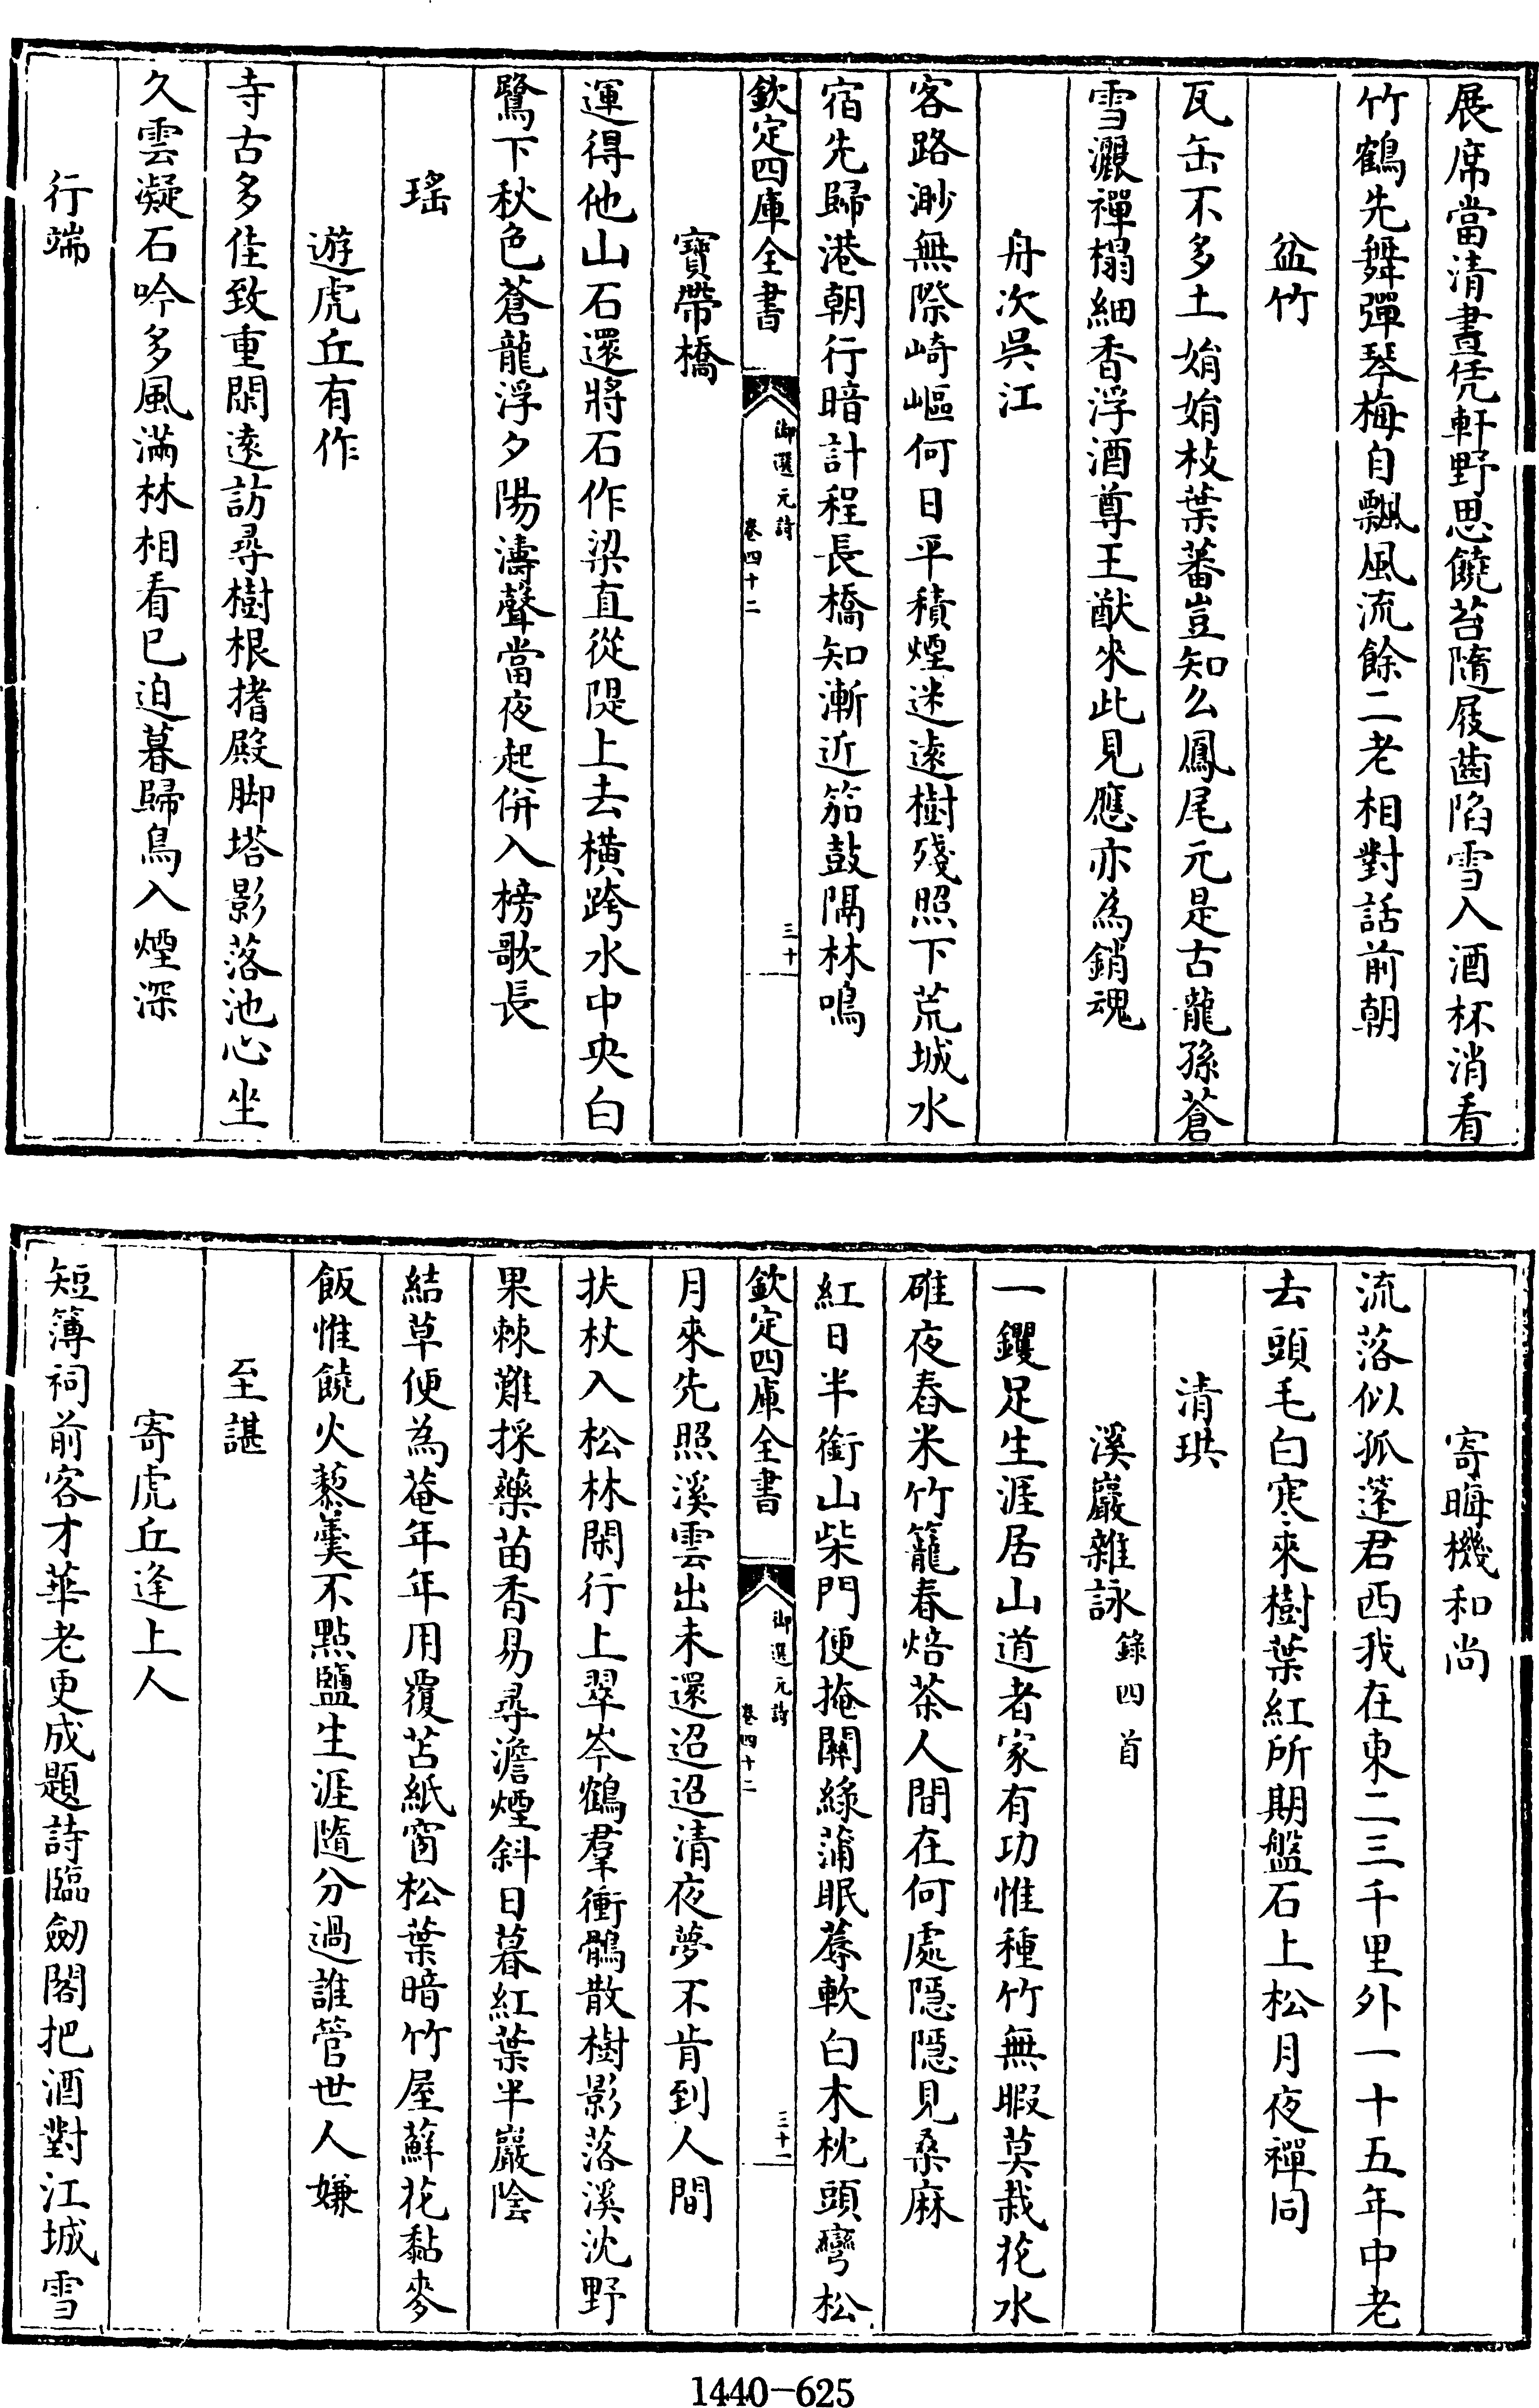 展席當清晝凭軒野思饒苔隨屐齒陷雪入酒杯消看
竹鶴先舞彈琴梅自飄風流餘二老相對話前朝
盆竹
瓦缶不多土娟娟枝葉蕃豈知么鳳尾元是古龍孫蒼
雪灑禪榻細香浮酒尊王猷來此見應亦為銷魂
舟次吳江
客路渺無際崎嶇何日平積煙迷遠樹殘照下荒城水
宿先歸港朝行暗計程長橋知漸近笳鼓隔林鳴
欽定四庫全書
御選元詩
卷四十二
三十
寶帶橋
運得他山石還將石作梁直從隄上去橫跨水中央白
鷺下秋色蒼龍浮夕陽濤聲當夜起併入榜歌長
瑤
遊虎丘有作
寺古多佳致重閑遠訪尋樹根揩殿脚塔影落池心坐
久雲凝石吟多風滿林相看已迫暮歸鳥入煙深
行端
寄晦機和尚
流落似孤蓬君西我在東二三千里外一十五年中老
去頭毛白寒來樹葉紅所期盤石上松月夜禪同
清珙
溪巖雜詠錄四首
一钁足生涯居山道者家有功惟種竹無暇莫栽花水
碓夜舂米竹籠春焙茶人間在何處隱隱見桑麻
紅日半銜山柴門便掩關綠蒲眠蓐軟白木枕頭彎松
欽定四庫全書
御選元詩
卷四十二
三十一
月來先照溪雲出未還迢迢清夜夢不肯到人間
扶杖入松林閑行上翠岑鶴羣衝鶻散樹影落溪沈野
果棘難採藥苗香易尋澹煙斜日暮紅葉半巖陰
結草便為菴年年用覆苫紙窗松葉暗竹屋蘚花黏麥
飯惟饒火藜羹不點鹽生涯隨分過誰管世人嫌
至諶
寄虎丘逢上人
短簿祠前客才華老更成題詩臨劒閣把酒對江城雪
1440-625